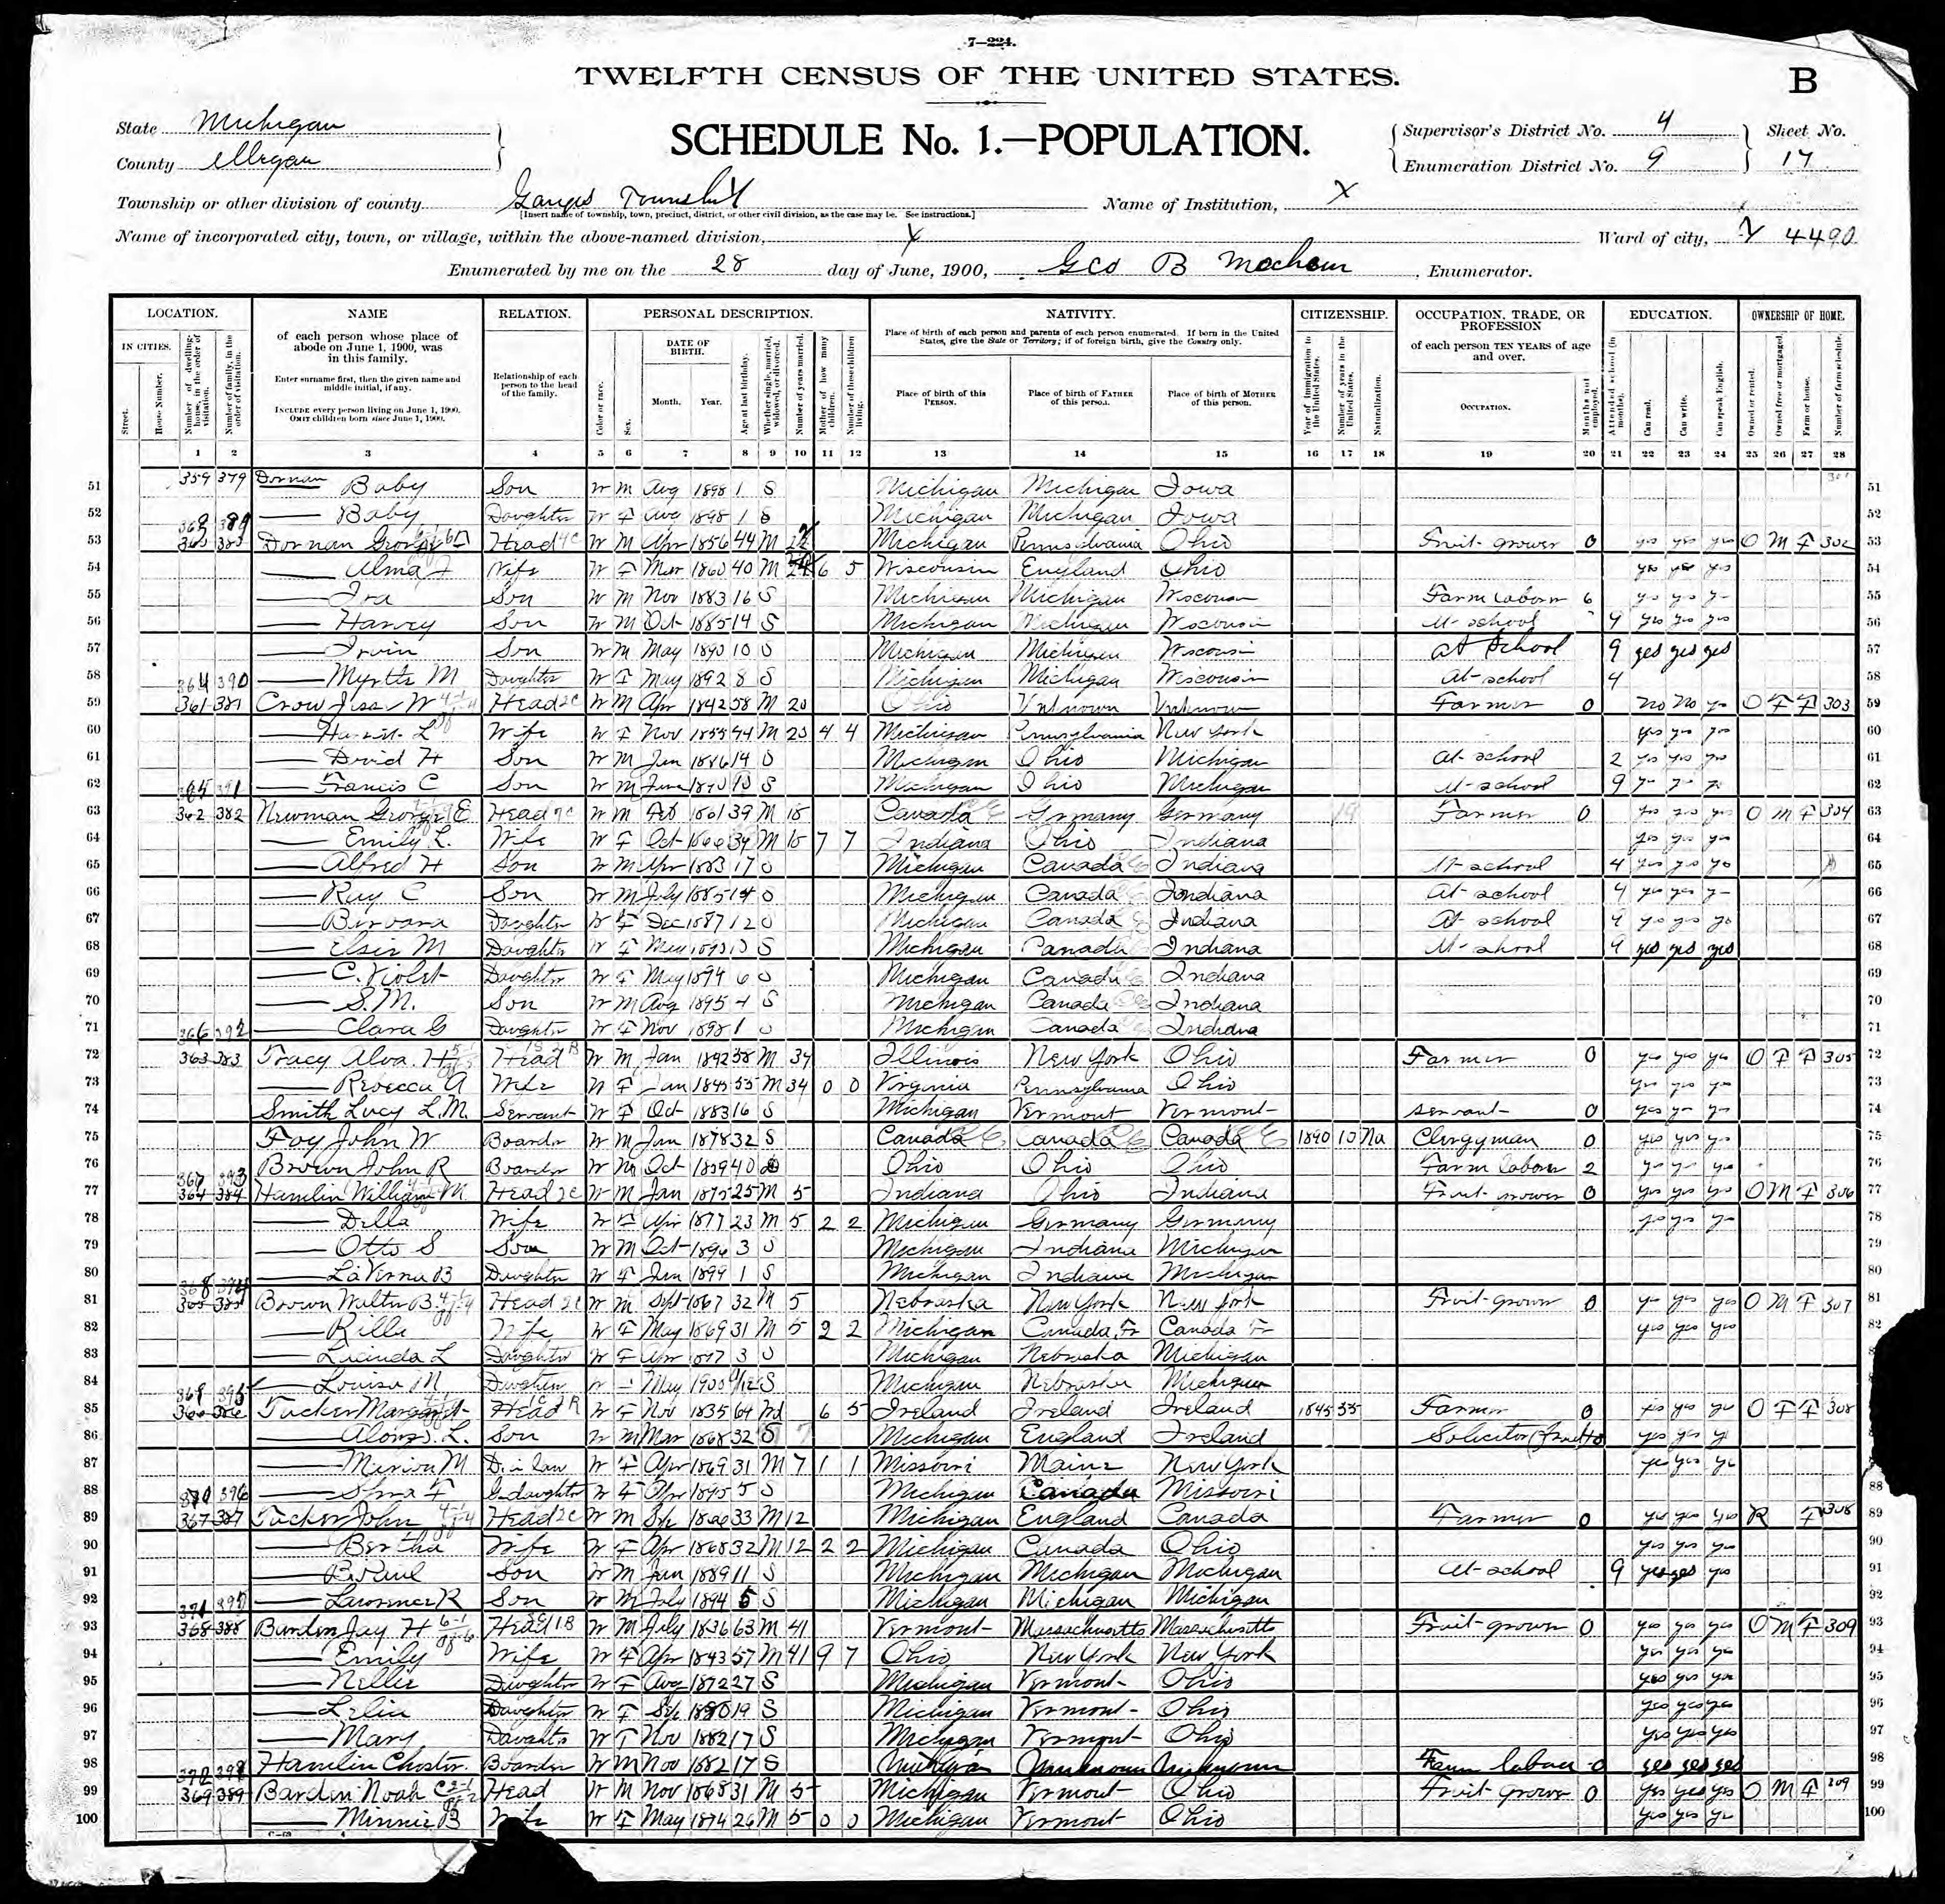 7—224.
TWELFTH CENSUS OF THE UNITED STATES.
B
State Michigan
County Allegan
SCHEDULE No. 1.—POPULATION.
Supervisor's District No. 4
Enumeration District No. 9
Sheet No. 17
Township or other division of county Ganges Township
[Insert name of township, town, precinct, district, or other civil division, as the case may be. See instructions.]
Name of Institution, X
Name of incorporated city, town, or village, within the above-named division, X
Ward of city, X 4490
Enumerated by me on the 28 day of June, 1900, Geo B , Enumerator.
LOCATION. NAME RELATION. PERSONAL DESCRIPTION. NATIVITY. CITIZENSHIP. OCCUPATION, TRADE, OR PROFESSION EDUCATION. OWNERSHIP OF HOME.
IN CITIES. Street. House Number. Number of dwelling-house, in the order of visitation. Number of family, in the order of visitation.
of each person whose place of abode on June 1, 1900, was in this family.
Enter surname first, then the given name and middle initial, if any.
INCLUDE every person living on June 1, 1900. OMIT children born since June 1, 1900.
Relationship of each person to the head of the family.
Color or race. Sex. DATE OF BIRTH. Month. Year. Age at last birthday. Whether single, married, widowed, or divorced. Number of years married. Mother of how many children. Number of these children living.
Place of birth of each person and parents of each person enumerated. If born in the United States, give the State or Territory; if of foreign birth, give the Country only.
Place of birth of this PERSON. Place of birth of FATHER of this person. Place of birth of MOTHER of this person.
Year of immigration to the United States. Number of years in the United States. Naturalization.
of each person TEN YEARS of age and over.
OCCUPATION. Months not employed.
Attended school (in months). Can read. Can write. Can speak English.
Owned or rented. Owned free or mortgaged. Farm or house. Number of farm schedule.
1 2 3 4 5 6 7 8 9 10 11 12 13 14 15 16 17 18 19 20 21 22 23 24 25 26 27 28
51 359 379 Dornan Baby Son W M Aug 1898 1 S Michigan Michigan Iowa 51
52 — Baby Daughter W F Aug 1898 1 S Michigan Michigan Iowa 52
53 Dornan George Head W M Apr 1856 44 M Michigan Pennsylvania Ohio Fruit grower 0 yes yes yes O M F 302 53
54 — Alma Wife W F Mar 1860 40 M 6 5 Wisconsin England Ohio yes yes yes 54
55 — Ira Son W M Nov 1883 16 S Michigan Michigan Wisconsin Farm laborer 6 yes yes yes 55
56 — Harvey Son W M Oct 1885 14 S Michigan Michigan Wisconsin At school 9 yes yes yes 56
57 — Irvin Son W M May 1890 10 S Michigan Michigan Wisconsin At School 9 yes yes yes 57
58 364 390 — Myrtle M Daughter W F May 1892 8 S Michigan Michigan Wisconsin At school 4 58
59 361 381 Crow W Head W M Apr 1842 58 M 20 Ohio Unknown Unknown Farmer 0 No No yes O F F 303 59
60 — L Wife W F Nov 1855 44 M 20 4 4 Michigan Pennsylvania New York yes yes yes 60
61 — David H Son W M Jan 1886 14 S Michigan Ohio Michigan At school 2 yes yes yes 61
62 365 391 — Francis C Son W M June 1890 10 S Michigan Ohio Michigan At school 9 yes yes yes 62
63 362 382 Newman George E Head W M Feb 1861 39 M 18 Canada Germany Germany Farmer 0 yes yes yes O M F 304 63
64 — Emily L. Wife W F Oct M 18 7 7 Indiana Ohio Indiana yes yes yes 64
65 — Alfred H Son W M Apr 1883 17 S Michigan Canada Indiana At school 4 yes yes yes 65
66 — Ray C Son W M July 1885 14 S Michigan Canada Indiana At school 4 yes yes yes 66
67 — Daughter W F Dec 1887 12 S Michigan Canada Indiana At school yes yes yes 67
68 — Elsie M Daughter W F May S Michigan Canada Indiana At school 9 yes yes yes 68
69 — C. Violet Daughter W F May 1894 6 S Michigan Canada Indiana 69
70 — S.M. Son W M Aug 1895 4 S Michigan Canada Indiana 70
71 366 392 — Clara G Daughter W F Nov 1898 1 S Michigan Canada Indiana 71
72 363 383 Tracy Alva H Head W M Jan 58 M 34 Illinois New York Ohio Farmer 0 yes yes yes O F F 305 72
73 — Rebecca A Wife W F Jan 1845 55 M 34 0 0 Virginia Pennsylvania Ohio yes yes yes 73
74 Smith Lucy L.M. Servant W F Oct 1883 16 S Michigan Vermont Vermont servant 0 yes yes yes 74
75 Foy John W Boarder W M Jan 32 S Canada Canada Canada 1890 10 Na Clergyman 0 yes yes yes 75
76 Brown John R Boarder W M Oct 1859 40 Ohio Ohio Ohio Farm laborer 2 yes yes yes 76
77 367 393 364 384 Hamlin William M. Head W M Jan 1875 25 M 5 Indiana Ohio Indiana Fruit grower 0 yes yes yes O M F 306 77
78 — Della Wife W F Apr 1877 23 M 5 2 2 Michigan Germany Germany yes yes yes 78
79 — Otto S Son W M Oct 1896 3 S Michigan Indiana Michigan 79
80 — LaVerna B Daughter W F Jan 1899 1 S Michigan Indiana Michigan 80
81 368 394 365 385 Brown Walter B. Head W M Sept 1867 32 M 5 Nebraska New York New York Fruit grower 0 yes yes yes O M F 307 81
82 — Wife W F May 1869 31 M 5 2 2 Michigan Canada Fr Canada Fr yes yes yes 82
83 — Lucinda L Daughter W F Apr 1897 3 S Michigan Nebraska Michigan
84 — Louisa M Daughter W May 1900 S Michigan Nebraska Michigan
85 369 395 366 386 Tucker Margaret Head W F Nov 1835 64 Wd 6 5 Ireland Ireland Ireland 1845 55 Farmer 0 yes yes yes O F F 308
86 — Alonzo L. Son W M Mar 1868 32 Michigan England Ireland Solicitor yes yes yes
87 — M D in law W F Apr 1869 31 M 7 1 1 Missouri Maine New York yes yes yes
88 370 396 — F Gdaughter W F Apr 1895 5 S Michigan Canada Missouri 88
89 367 387 Tucker John Head W M Sep 1866 33 M 12 Michigan England Canada Farmer 0 yes yes yes R F 308 89
90 — Bertha Wife W F Apr 1868 32 M 12 2 2 Michigan Canada Ohio yes yes yes 90
91 — Son W M Jan 1889 11 S Michigan Michigan Michigan At school 9 yes yes yes 91
92 — R Son W M July 1894 5 S Michigan Michigan Michigan 92
93 371 397 368 388 Jay H Head W M July 1836 63 M 41 Vermont Massachusetts Massachusetts Fruit grower 0 yes yes yes O M F 309 93
94 — Emily Wife W F Apr 1843 57 M 41 9 7 Ohio New York New York yes yes yes 94
95 — Nellie Daughter W F Aug 1872 27 S Michigan Vermont Ohio yes yes yes 95
96 — Daughter W F Sep 1880 19 S Michigan Vermont Ohio yes yes yes 96
97 — Mary Daughter W F Nov 1882 17 S Michigan Vermont Ohio yes yes yes 97
98 Hamlin Chester Boarder W M Nov 1882 17 S Michigan Unknown Unknown Farm laborer 0 yes yes yes 98
99 372 398 369 389 Barden Noah C Head W M Nov 1868 31 M 5 Michigan Vermont Ohio Fruit grower 0 yes yes yes O M F 309 99
100 — Minnie B Wife W F May 1874 26 M 5 0 0 Michigan Vermont Ohio yes yes yes 100